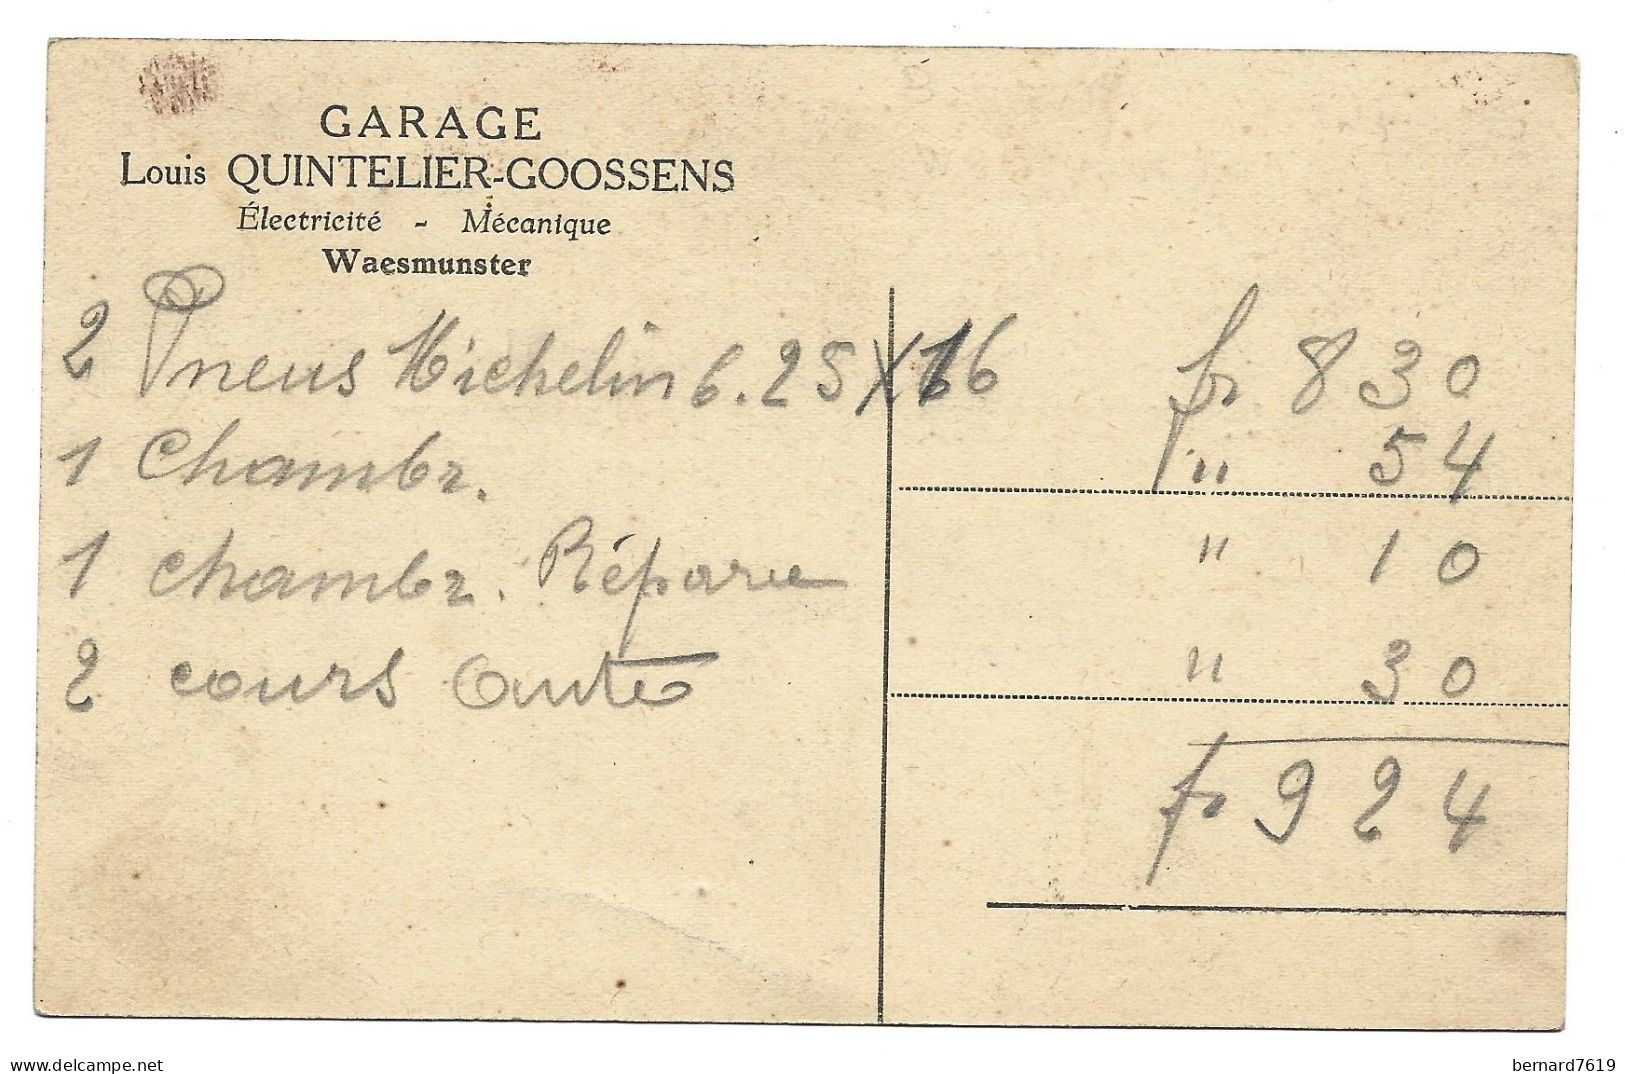 GARAGE
Louis QUINTELIER-GOOSSENS
Électricité - Mécanique
Waesmunster
2 Pneus Michelin 6.25 X 16 fr 830
1 Chambr. " 54
1 chambr. Réparee " 10
2 cours Auto " 30
fr 924
delcampe.net
bernard7619